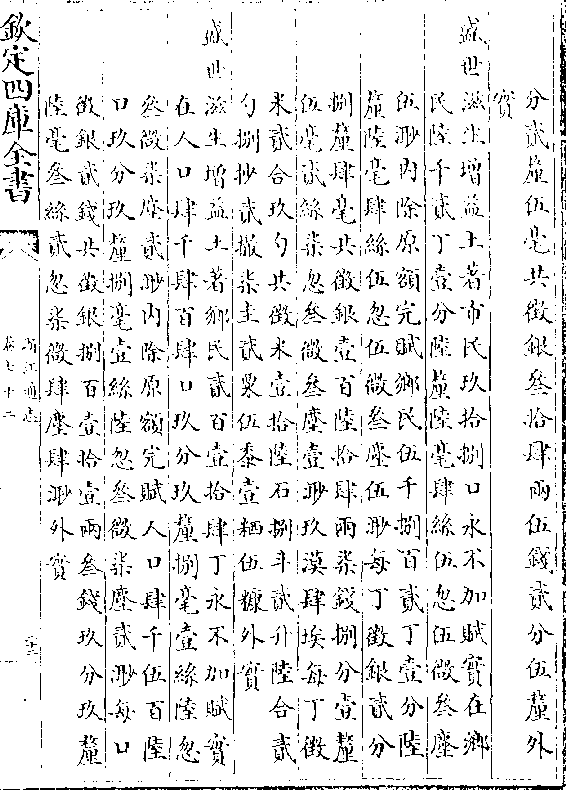 分貳釐伍毫共徵銀叁拾肆兩伍錢貳分伍釐外
實
盛世滋生增益土著市民玖拾捌口永不加賦實在鄉
民陸千貳丁壹分陸釐陸毫肆絲伍忽伍微叁塵
伍渺内除原額完賦鄉民伍千捌百貳丁壹分陸
釐陸毫肆絲伍忽伍微叁塵伍渺每丁徵銀貳分
捌釐肆毫共徵銀壹百陸拾肆兩柒錢捌分壹釐
伍毫貳絲柒忽叁微叁塵壹渺玖漠肆埃每丁徵
米貳合玖勺共徵米壹拾陸石捌斗貳升陸合貳
勺捌抄貳撮柒圭貳粟伍黍壹粞伍糠外實
盛世滋生增益土著鄉民貳百壹拾肆丁永不加賦實
在人口肆千肆百肆口玖分玖釐捌毫壹絲陸忽
叁微柒塵貳渺内除原額完賦人口肆千伍百陸
口玖分玖釐捌毫壹絲陸忽叁微柒塵貳渺每口
徵銀貳錢共徵銀捌百壹拾壹兩叁錢玖分玖釐
陸毫叁絲貳忽柒微肆塵肆渺外實
欽定四庫全書
浙江通志
卷七十二